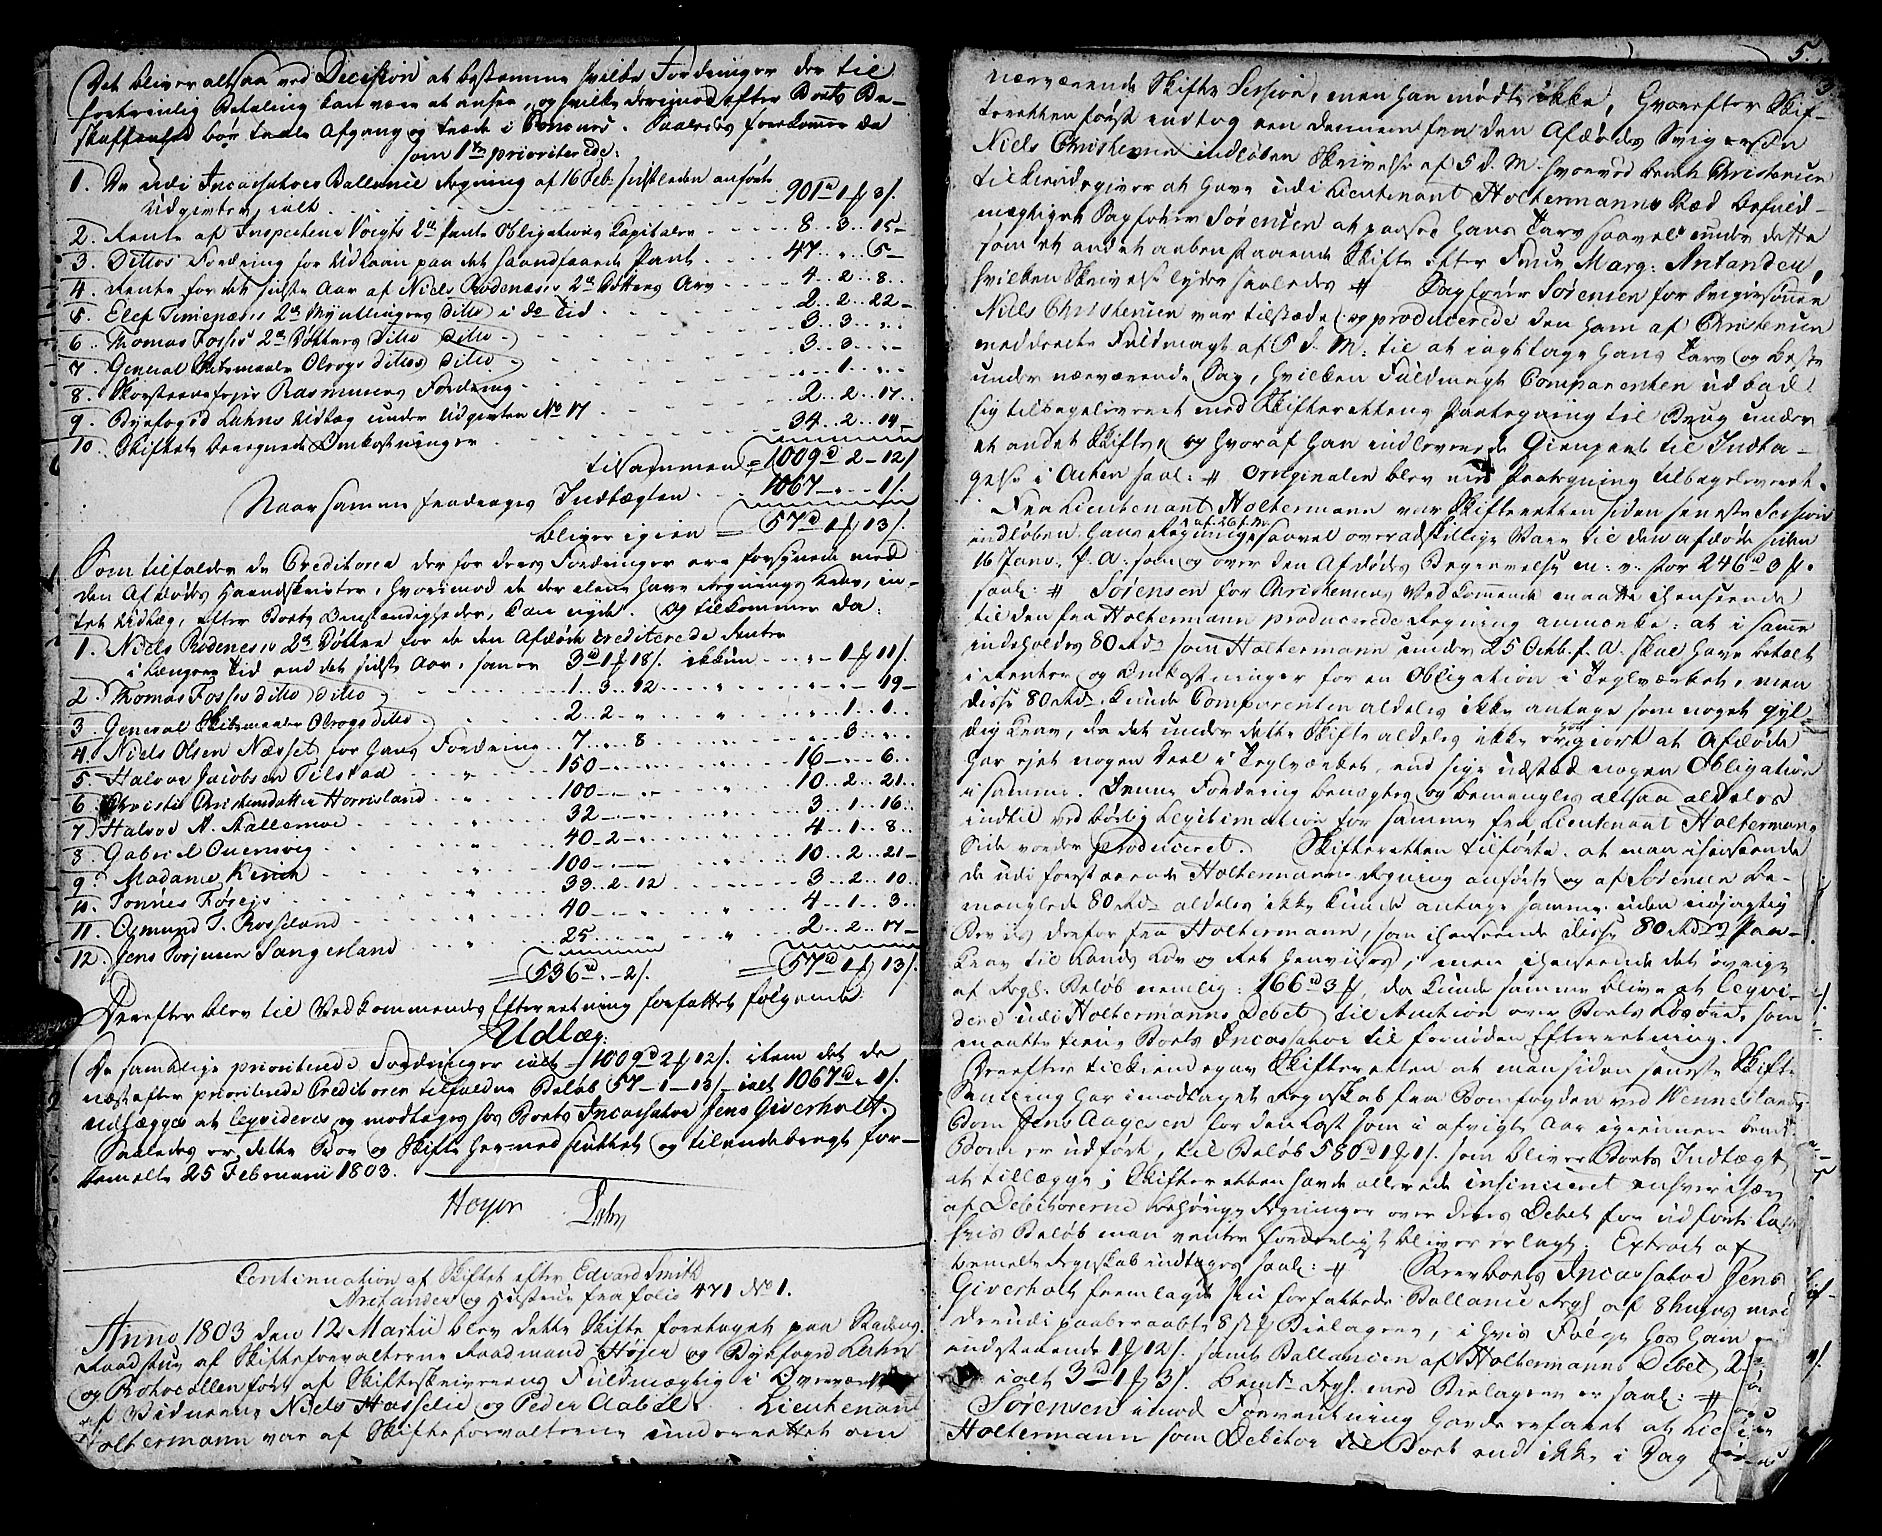 Det bliver altsaa ved Decision at bestemme hvilke Fordringer der til
fortrinlig Betaling kan være at ansee, og hvilke derimod efter Boets Be-
skaffenhed bør taale Afgang og træde i Concurs. Saaledes forekommer da
som 1te prioriterede:
1. De udi Incassators Ballance Regning af 16 Feb: sidstleden anførte
Udgivter, ialt 901d 1 f 3 s.
2. Rente af Inspecteur Voigts 2den Pante Obligations Capitaler 8 .. 3 .. 15
3. Dittos Fordring for Udlaan paa det haandfaaede Pant 47 .. " .. 5
4. Rente for det sidste Aar af Niels Rodenæses 2de Døttres Arv 4 .. 2 .. 8
5. Elef Simenæses 2de Myndtlingers ditto i do Tid 2 .. 2 .. 22
6. Thomas Fosses 2de Døttres Ditto Ditto 3 .. 3 .. "
7. General Krigsmaaler Obrogs dittos ditto 3 .. 3 .. "
8. Skorsteensfejer Rasmusens Fordring " .. 1 .. "
9. Byefoged Lahns Udlæg under Udgivten No 17 2 .. 2 .. 17
10. Skiftets beregnede Omkostninger 34 .. 2 .. 14
tilsammen 1009d 2 - 12 s.
Naar samme fradrages Indtægten 1067 - " - 1 s.
bliver igien 57d 1 f 13 s.
Som tilfalder de Creditorer der for deres Fordringer ere forsynede med
den Afdødes Haandskrivter, hvorimod de der alene have Regnings Krav, in-
tet Udlæg, efter Boets Omstændigheder, kan nyde. Og tilkommer da:
1. Niels Rodenæses 2de Døttre for de den Afdøde crediterede Renter
i længere Tid end det sidste Aar, som er 3d 1 f 18 s. ikkun " - 1 f 11 s.
2. Thomas Fosses ditto ditto 1 .. 3 .. 12 " " .. " - 19
3. General Obrogs ditto 2 .. 2 .. " " " .. 1 .. 1
4. Niels Olsen Næsset for hans Fordring 7 .. " .. 8 " " .. 3 .. "
5. Halvor Jacobsen Tilstad 150 16 - " - 6
6. Christi Christensdatter Horrisland 100 10 .. 2 .. 21
7. Halvor A. Kallernoe 32 3 .. 1 .. 16
8. Gabriel Ouensvig 40 - 2 - " 4 .. 1 .. 8
9. Madame Kinck 100 10 .. 2 .. 21
10. Tønnes Førejs 33 .. 2 .. 12 3 .. 2 .. 10
11. Osmund T. Rosseland 40 4 .. 1 .. 3
12. Jens Torjusen Sangesland 25 2 .. 2 .. 17
536d " - 2 s. 57d 1 f 13 s.
Derefter blev til Vedkommendes Efterretning forfattet følgende
Udlæg:
De samtlige prioriterede Fordringer ialt 1009d 2 f 12 s. item det de
næstefter prioriterede Creditorer tilfaldne Beløb 57 - 1 - 13 ialt 1067d " 1 s.
udlægges at leqvideres og modtages hos Boets Incassator Jens Giverholt.
Saaledes er dette Boe og Skifte hermed sluttet og tilendebragt for-
bemelte 25 Februarii 1803.
Høyer Lahn
Continuation af Skiftet efter Edvard Smith
Aretander og Hustrue fra folio 471 No 1.
Anno 1803 den 12 Martii blev dette Skifte foretaget paa Stadens
Raadstue af Skifteforvalterne Raadmand Høyer og Byefoged Lahn
og Protocollen ført af Skifteskriverens Fuldmægtig i Overværelse
af Vidnerne Niels Hasselie og Peder Aabel. Lieutenant
Holtermann var af Skifteforvalterne underrettet om
5.
3
nærværende Skifte Session, men han mødte ikke, hvorefter Skif-
teretten først indtog een dennem fra den Afdødes Svigersøn
Niels Christensen indløben Skrivelse af 5 d. M. hvorved bemte Christensen
tilkiendegiver at have udi Lieutenant Holtermanns Sted befuld-
mægtiget Sagfører Sørensen at paasee hans Tarv saavel under dette
som et andet aabenstaaende Skifte efter Frue Marg: Antander,
hvilken Skrivelse lyder saaledes # Sagfører Sørensen for Svigersønnen
Niels Christensen var tilstæde og producerede den ham af Christensen
meddeelte Fuldmagt af 5 d. M: til at iagttage hans Tarv og Beste
under nærværende Sag, hvilken Fuldmagt Comparenten udbad
sig tilbageleveret med Skifterettens Paategning til Brug under
et andet Skifte, og hvoraf han indleverede Gienpart til Indta-
gelse i Acten saal: # Originalen blev med Paategning tilbageleveret.
Fra Lieutenant Holtermann var Skifteretten siden seneste Session
indløben hans Regning af 26 f. M. saavel over adskillige Vare til den afdøde siden
16 Janv. f. A. som og over den Afdødes Begravelse m: v. for 246d 3 f.
saal: # Sørensen for Christensens Vedkommende maatte ihenseende
til den fra Holtermann producerede Regning anmærke: at i samme
indeholdes 80 Rd som Holtermann under 25 Octb. f. A. skal have betalt
i Renter og Omkostninger for en Obligation i Teglværket, men
disse 80 Rd kunde Comparenten aldeles ikke antage som noget gyl-
dig Krav, da det under dette Skifte aldeles ikke er giort at Afdøde
har ejet nogen Deel i Teglværket, end sige udstæd nogen Obligation
i samme. Denne Fordring benegtes og bemangles altsaa aldeles
indtil ved lovlig Legitimation for samme fra Lieutenant Holtermanns
Side vorder produceret. Skifteretten tilførte at man ihenseende
de udi forestaaende Holtermanns Regning anførte og af Sørensen be-
manglede 80 Rd aldeles ikke kunde antage samme uden nøjagtig
Beviis derfor fra Holtermann, som ihenseende disse 80 Rds Paa-
krav til Lands Lov og Ret henvises, men ihenseende det øvrige
af Regs. Beløb nemlig: 166d 3 f, da kunde samme blive at leqvi-
dere udi Holtermanns Debet til Auction over Boets Løsøre, som
maatte tiene Boets Incassator til fornøden Efterretning.
Derefter tilkiendegav Skifteretten at man siden seneste Skifte
Samling har imodtaget Regnskab fra Bomfogden ved Wennesland
Bom Jens Aagesen for den Last som i afvigte Aar igiennem bemte
Bom er udført, til Beløb 580d 1 f 1 s. som bliver Boets Indtægt
at tillægge; Skifteretten havde allerede insinueret enhver især
af Debitorerne behørige Regninger over deres Debet for udførte Last
hvis Beløb man venter fordeeligst bliver erlagt. Extract af
bemelte Regnskab indtages saal: # Næst Boets Incassator Jens
Giverholt fremlagde sin forfattede Ballance Regs. af 8 hujus med
derudi paaberaabte 8 st Bielagen, i hvis Følge hos ham er
indestaaende 1 f 12 s. samt Ballancen af Holtermanns Debet 2
ialt 3d 1 f 3 s. Bemte Regs. med Bielagene er saal: #
Sørensen imod Forventning havde erfaret at Lieute-
Holtermann som Debitor til Boet end ikke i Dag